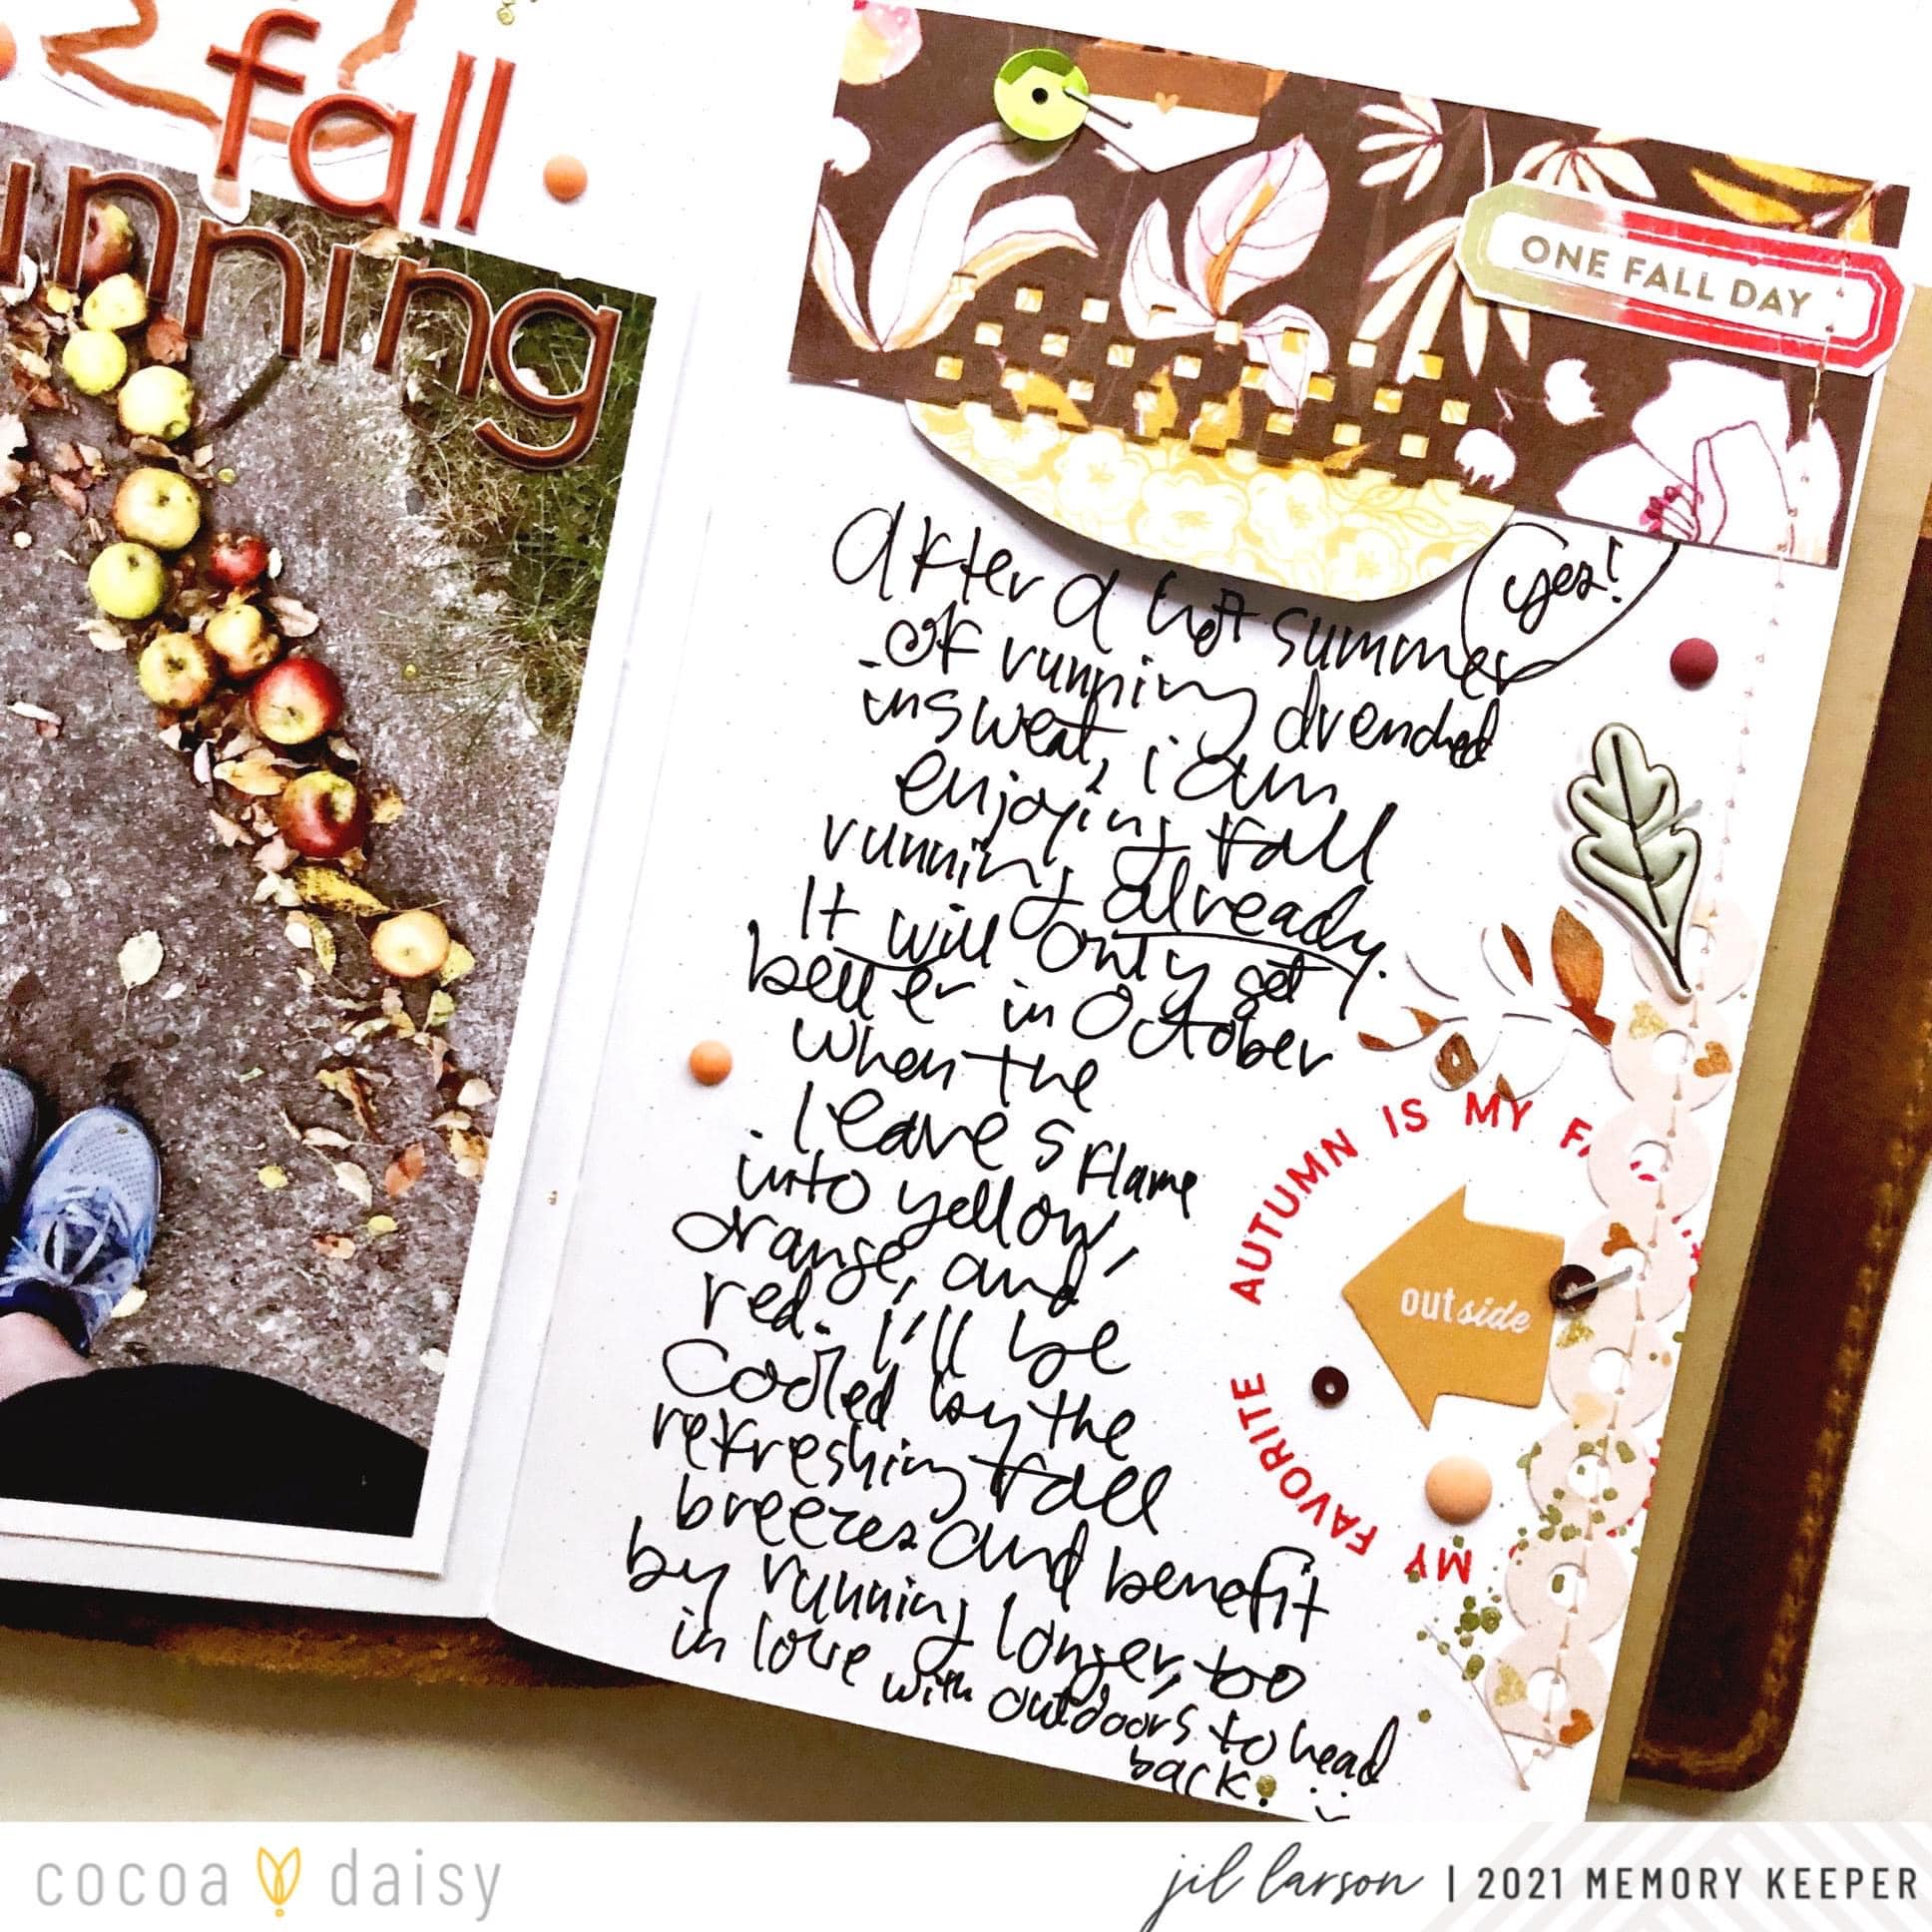 fall
unning
ONE FALL DAY
yes!
after a hot summer
of running drenched
in sweat, i am
enjoying fall
running already.
It will only get
better in October
when the
leaves flame
into yellow,
orange, and
red. I'll be
cooled by the
refreshing fall
breezes and benefit
by running longer, too
in love with outdoors to head
back!
AUTUMN IS MY FA
outside
MY FAVORITE
cocoa daisy
jil larson | 2021 MEMORY KEEPER